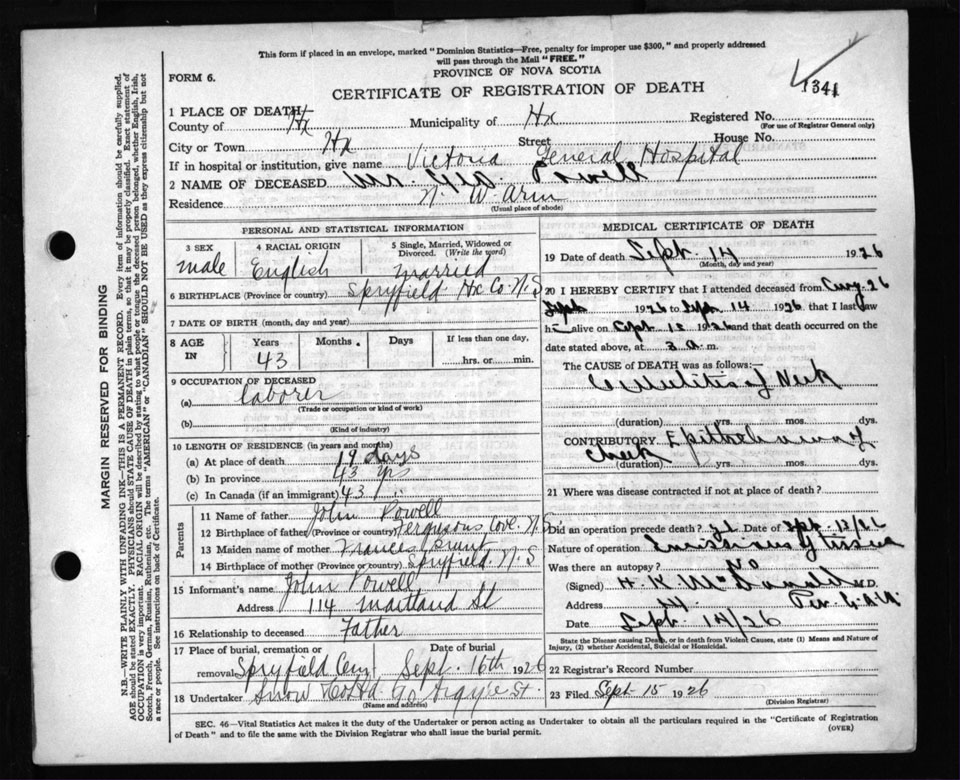 This form if placed in an envelope, marked "Dominion Statistics—Free, penalty for improper use $300," and properly addressed
will pass through the Mail "FREE."
FORM 6.
PROVINCE OF NOVA SCOTIA
CERTIFICATE OF REGISTRATION OF DEATH
1341
1 PLACE OF DEATH
County of Hx Municipality of Hx Registered No.
(For use of Registrar General only)
City or Town Hx Street House No.
If in hospital or institution, give name Victoria General Hospital
2 NAME OF DECEASED Powell
Residence N. W Arm
(Usual place of abode)
PERSONAL AND STATISTICAL INFORMATION
3 SEX 4 RACIAL ORIGIN 5 Single, Married, Widowed or Divorced. (Write the word)
male English married
6 BIRTHPLACE (Province or country) Spryfield Hx Co. N.S
7 DATE OF BIRTH (month, day and year)
8 AGE IN Years Months Days If less than one day,
43 hrs. or min.
9 OCCUPATION OF DECEASED
(a) laborer
(Trade or occupation or kind of work)
(b)
(Kind of industry)
10 LENGTH OF RESIDENCE (in years and months)
(a) At place of death 19 days
(b) In province 43 yrs
(c) In Canada (if an immigrant) 43 "
Parents
11 Name of father John Powell
12 Birthplace of father (Province or country) Fergusons Cove. N.S
13 Maiden name of mother Frances Brunt
14 Birthplace of mother (Province or country) Spryfield. N. S
15 Informant's name John Powell
Address 114 Maitland St
16 Relationship to deceased Father
17 Place of burial, cremation or removal Date of burial
Spryfield Cem. Sept. 16th 1926
18 Undertaker Snow Co Argyle St.
(Name and address)
MEDICAL CERTIFICATE OF DEATH
19 Date of death Sept. 14 1926
(Month, day and year)
20 I HEREBY CERTIFY that I attended deceased from Aug. 26
1926 to Sept 14 1926 that I last saw
h alive on Sept 1926 and that death occurred on
date stated above, at 3 a. m.
The CAUSE of DEATH was as follows:
Cellulitis of Neck
(duration) yrs. mos. dys.
CONTRIBUTORY. Epithelioma of
cheek
(duration) yrs. mos. dys.
21 Where was disease contracted if not at place of death?
Did an operation precede death? Date of Sept. 13/26
Nature of operation of tissue
Was there an autopsy? No
(Signed) H. K. McDonald M.D.
Address Per G.A.
Date Sept. 14/26
State the Disease causing Death, or in death from Violent Causes, state (1) Means and Nature of
Injury, (2) whether Accidental, Suicidal or Homicidal.
22 Registrar's Record Number
23 Filed Sept 15 1926
(Division Registrar)
SEC. 46—Vital Statistics Act makes it the duty of the Undertaker or person acting as Undertaker to obtain all the particulars required in the "Certificate of Registration
of Death" and to file the same with the Division Registrar who shall issue the burial permit.
(OVER)
MARGIN RESERVED FOR BINDING
N.B—WRITE PLAINLY WITH UNFADING INK—THIS IS A PERMANENT RECORD. Every item of information should be carefully supplied.
AGE should be stated EXACTLY. PHYSICIANS should STATE CAUSE OF DEATH in plain terms, so that it may be properly classified. Exact statement of
OCCUPATION is very important. RACIAL ORIGIN will be described by stating to what people or tongue the deceased person belonged, whether English, Irish,
Scotch, French, German, Russian, Ruthenian, etc. The terms "AMERICAN" or "CANADIAN" SHOULD NOT BE USED as they express citizenship but not
a race or people. See instructions on back of Certificate.